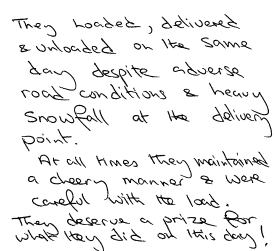 They loaded, delivered
& unloaded on the same
day despite adverse
road conditions & heavy
snowfall at the delivery
point.
At all times they maintained
a cheery manner & were
careful with the load.
They deserve a prize for
what they did on this day!